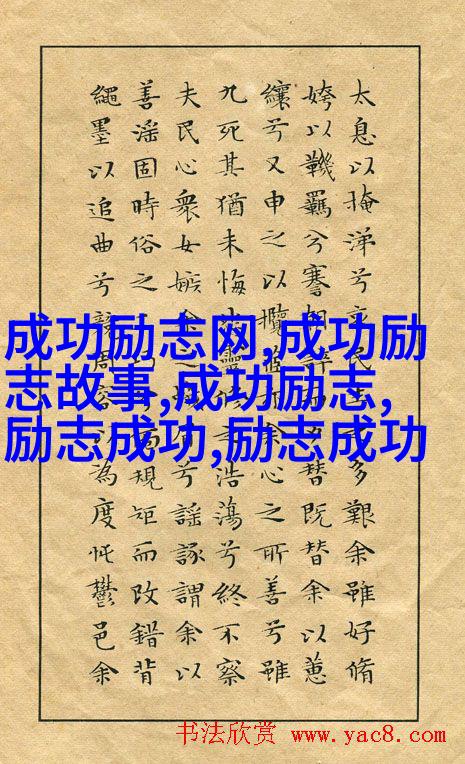 太息以掩涕兮哀民多艱余雖好脩
姱以鞿羈兮謇朝誶替既替余以蕙
纕兮又申之以攬茝余心之所善兮雖
九死其猶未悔靈浩蕩兮終不察
夫民心衆女嫉余之兮謠諑謂余以
善淫固時俗之規矩而改錯背
繩墨以追曲兮競周容以為度忳鬱邑余
成功励志网,成功励
志故事,成功励志,
励志成功,励志成功
书法欣赏 www.yac8.com